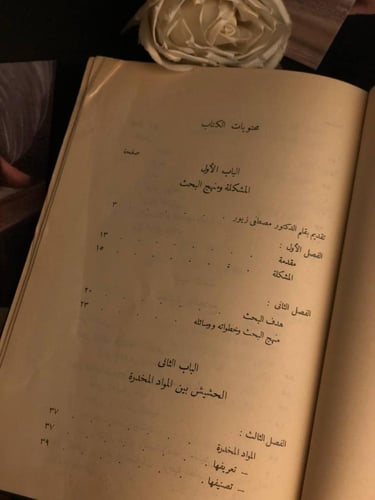 محتويات الكتاب
صفحة
الباب الأول
المشكلة ومنهج البحث
تقديم بقلم الدكتور مصطفى زيور . . . . ٣
الفصل الأول :
مقدمة . . . . . . ١٣
المشكلة . . . . . . ١٥
الفصل الثانى :
هدف البحث . . . . . . ٢٠
منهج البحث وخطواته ووسائله . . . . ٢٣
الباب الثانى
الحشيش بين المواد المخدرة
الفصل الثالث :
المواد المخدرة . . . . . . ٣٧
— تعريفها . . . . . . ٣٧
— تصنيفها . . . . . . ٣٩